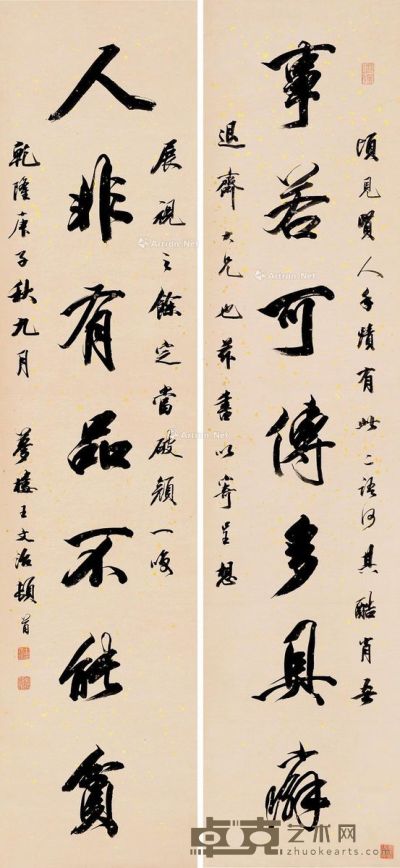 頃見賢人手蹟有此二語何其酷肖吾
事若可傳多具癖
退齋大兄也茲書以寄呈想
展視之餘定當破顏一笑
人非有品不能貧
乾隆庚子秋九月 夢樓王文治頓首
Artron.Net
Artron.Net
卓克艺术网
zhuokearts.com